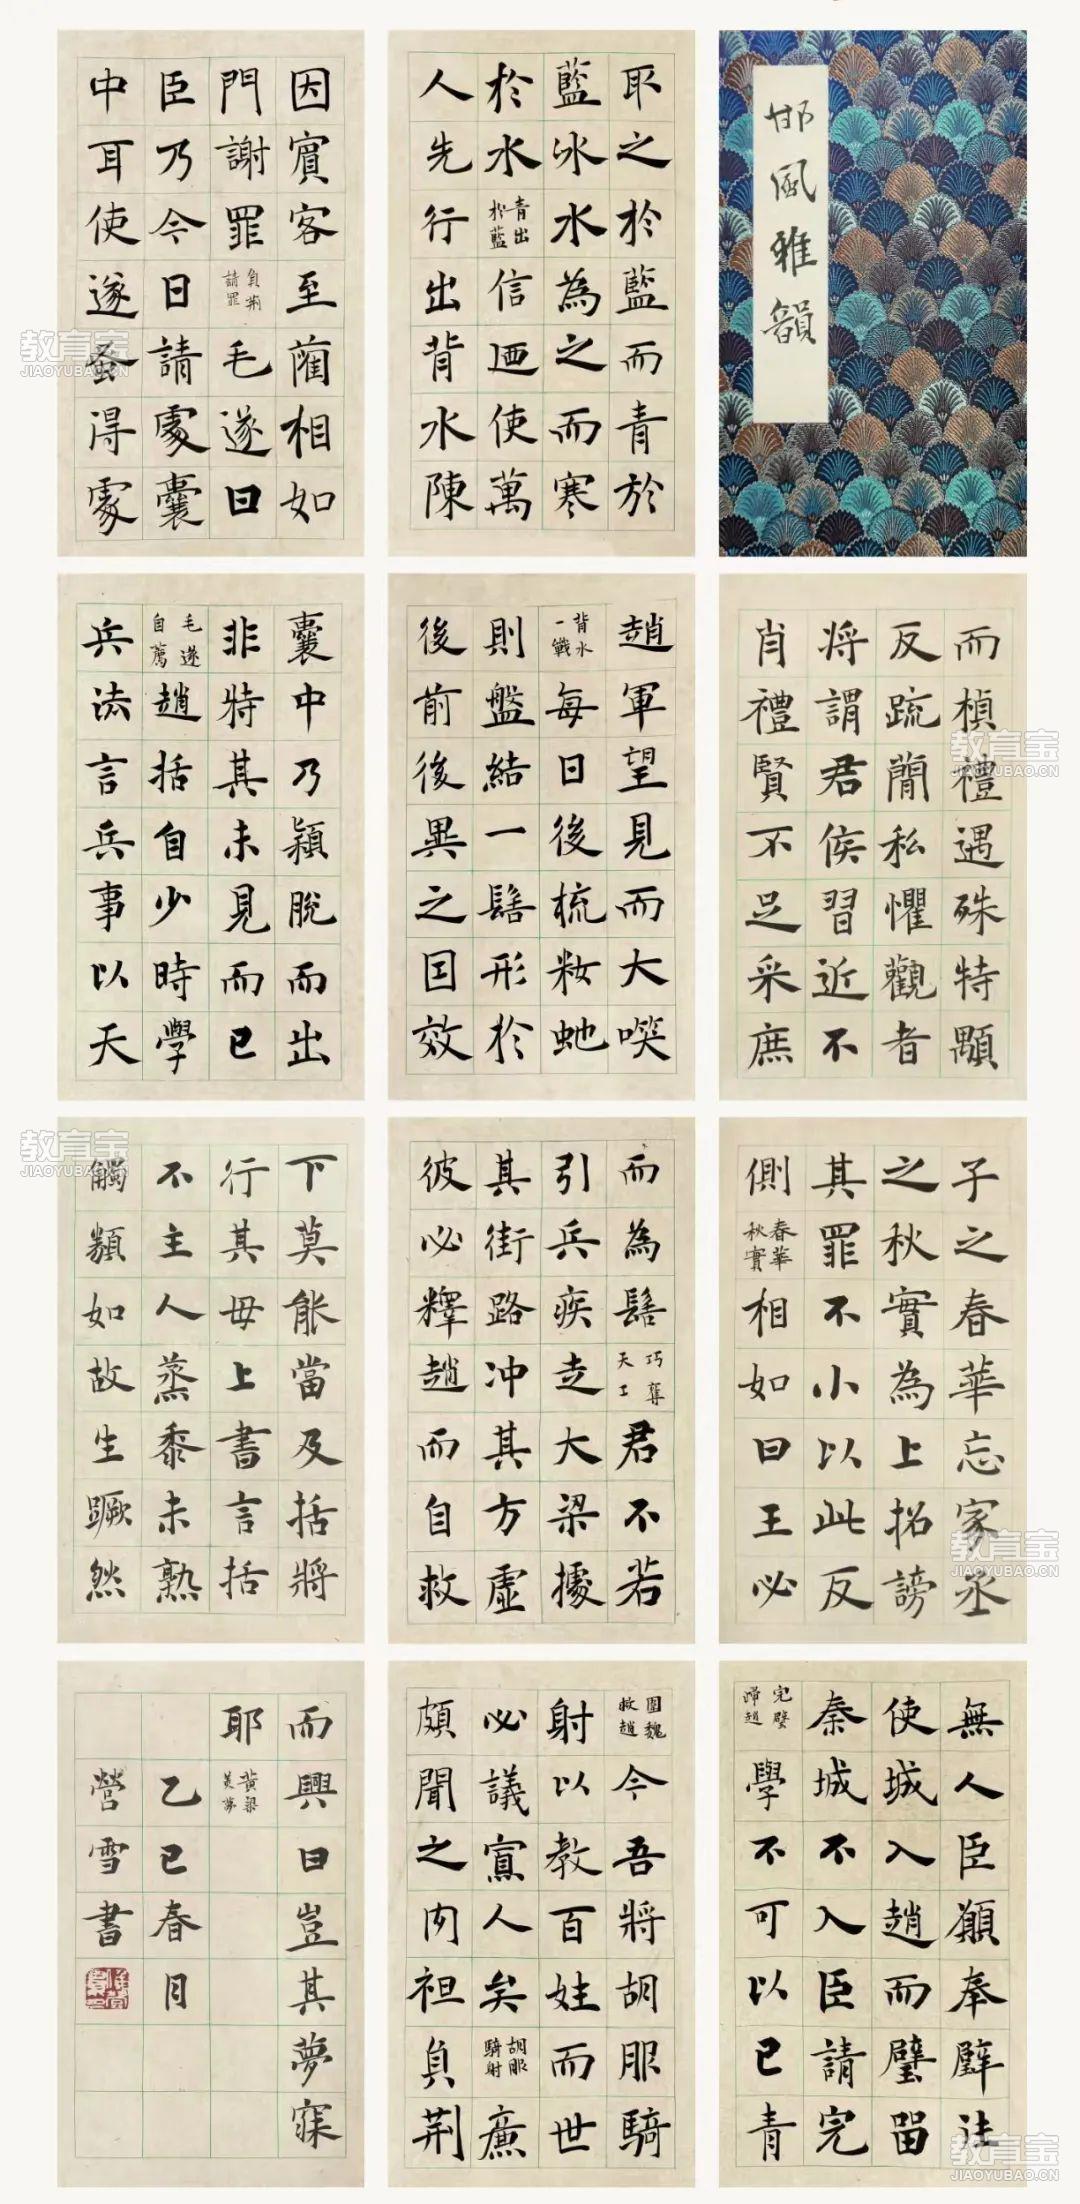 邯風雅韻
而楨禮遇殊特顒
反疏簡私懼觀者
将謂君侯習近不
肖禮賢不足采庶
子之春華忘家丞
之秋實為上招謗
其罪不小以此反
側春華秋實相如曰王必
無人臣願奉璧往
使城入趙而璧留
秦城不入臣請完
完璧歸趙學不可以已青
取之於藍而青於
藍冰水為之而寒
於水青出於藍信迺使萬
人先行出背水陳
趙軍望見而大笑
背水一戰每日後梳妝虵
則盤結一髻形於
後前後異之因效
而為髻巧奪天工君不若
引兵疾走大梁據
其街路冲其方虛
彼必釋趙而自救
圍魏救趙今吾將胡服騎
射以教百姓而世
必議寡人矣胡服騎射廉
頗聞之肉袒負荊
因賓客至藺相如
門謝罪負荊請罪毛遂曰
臣乃今日請處囊
中耳使遂蚤得處
囊中乃穎脫而出
非特其未見而已
毛遂自薦趙括自少時學
兵法言兵事以天
下莫能當及括將
行其母上書言括
不主人蒸黍未熟
觸類如故生蹶然
而興曰豈其夢寐
耶黃粱美夢
乙巳春月
營雪書
教育宝
JIAOYUBAO.CN
教育宝
JIAOYUBAO.CN
教育宝
JIAOYUBAO.CN
教育宝
JIAOYUBAO.CN
教育宝
JIAOYUBAO.CN